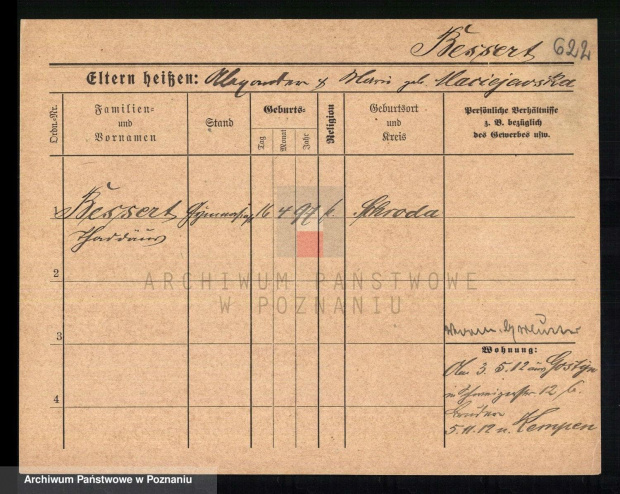 Bessert 622
Eltern heißen: Alexander & Marie geb. Maciejewska
Ordn.-Nr.
Familien-
und
Vornamen
Stand
Geburts-
Tag
Monat
Jahr
Religion
Geburtsort
und
Kreis
Persönliche Verhältnisse
z. B. bezüglich
des Gewerbes usw.
Bessert 16 4 97 k. Schroda
Thaddäus
ARCHIWUM PAŃSTWOWE
W POZNANIU
2
3
4
Wohnung:
3. 5. 12 aus Gostyn
12/6
5.11.12 n. Kempen
Archiwum Państwowe w Poznaniu